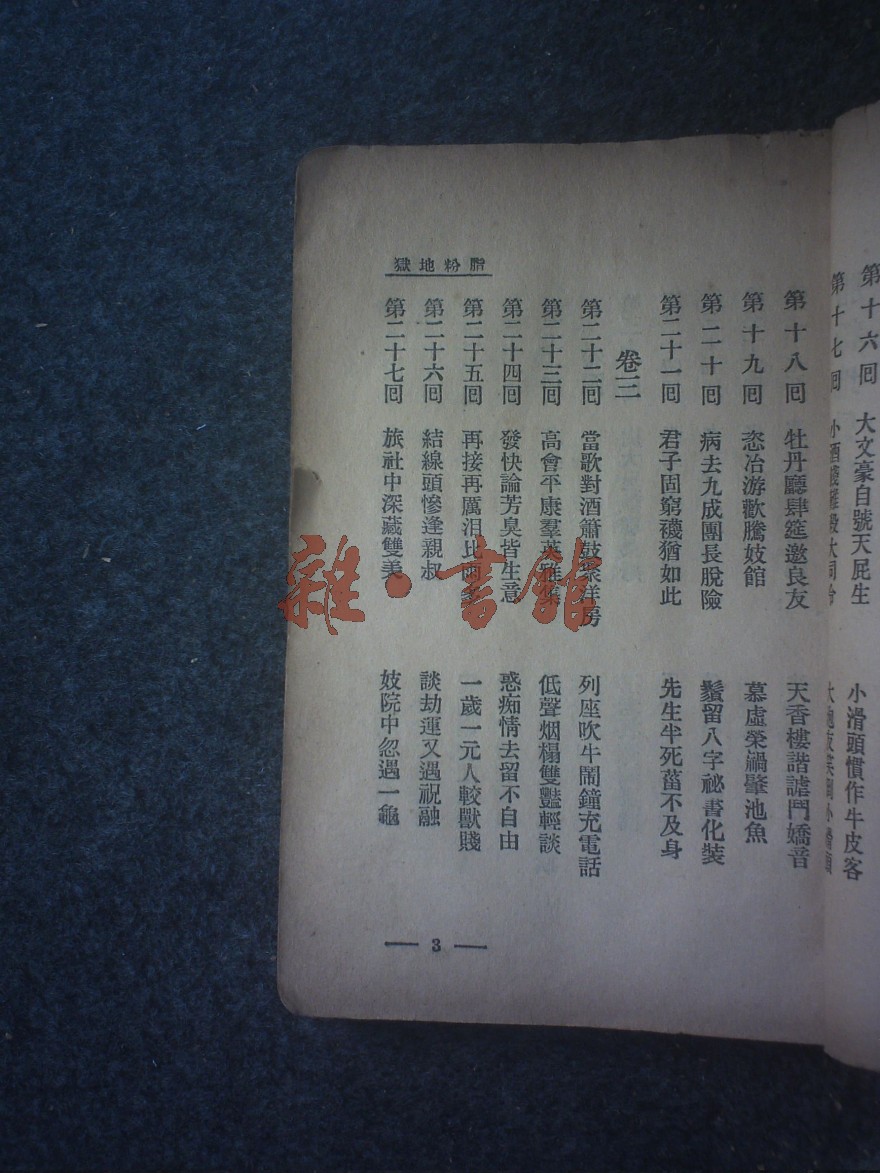 獄地粉脂
第十六回 大文豪自號天屁生 小滑頭慣作牛皮客
第十七回
第十八回 牡丹廳肆筵邀良友 天香樓諧謔鬥嬌音
第十九回 恣冶游歡騰妓館 慕虛榮禍肇池魚
第二十回 病去九成團長脫險 鬚留八字祕書化裝
第二十一回 君子固窮襪猶如此 先生半死菑不及身
卷三
第二十二回 當歌對酒簫鼓 洋房 列座吹牛鬧鐘充電話
第二十三回 高會平康羣英雅集 低聲烟榻雙豔輕談
第二十四回 發快論芳臭皆生意 惑痴情去留不自由
第二十五回 再接再厲泪比 一歲一元人較獸賤
第二十六回 結線頭慘逢親叔 談劫運又遇祝融
第二十七回 旅社中深藏雙美 妓院中忽遇一龜
3
雜·書館